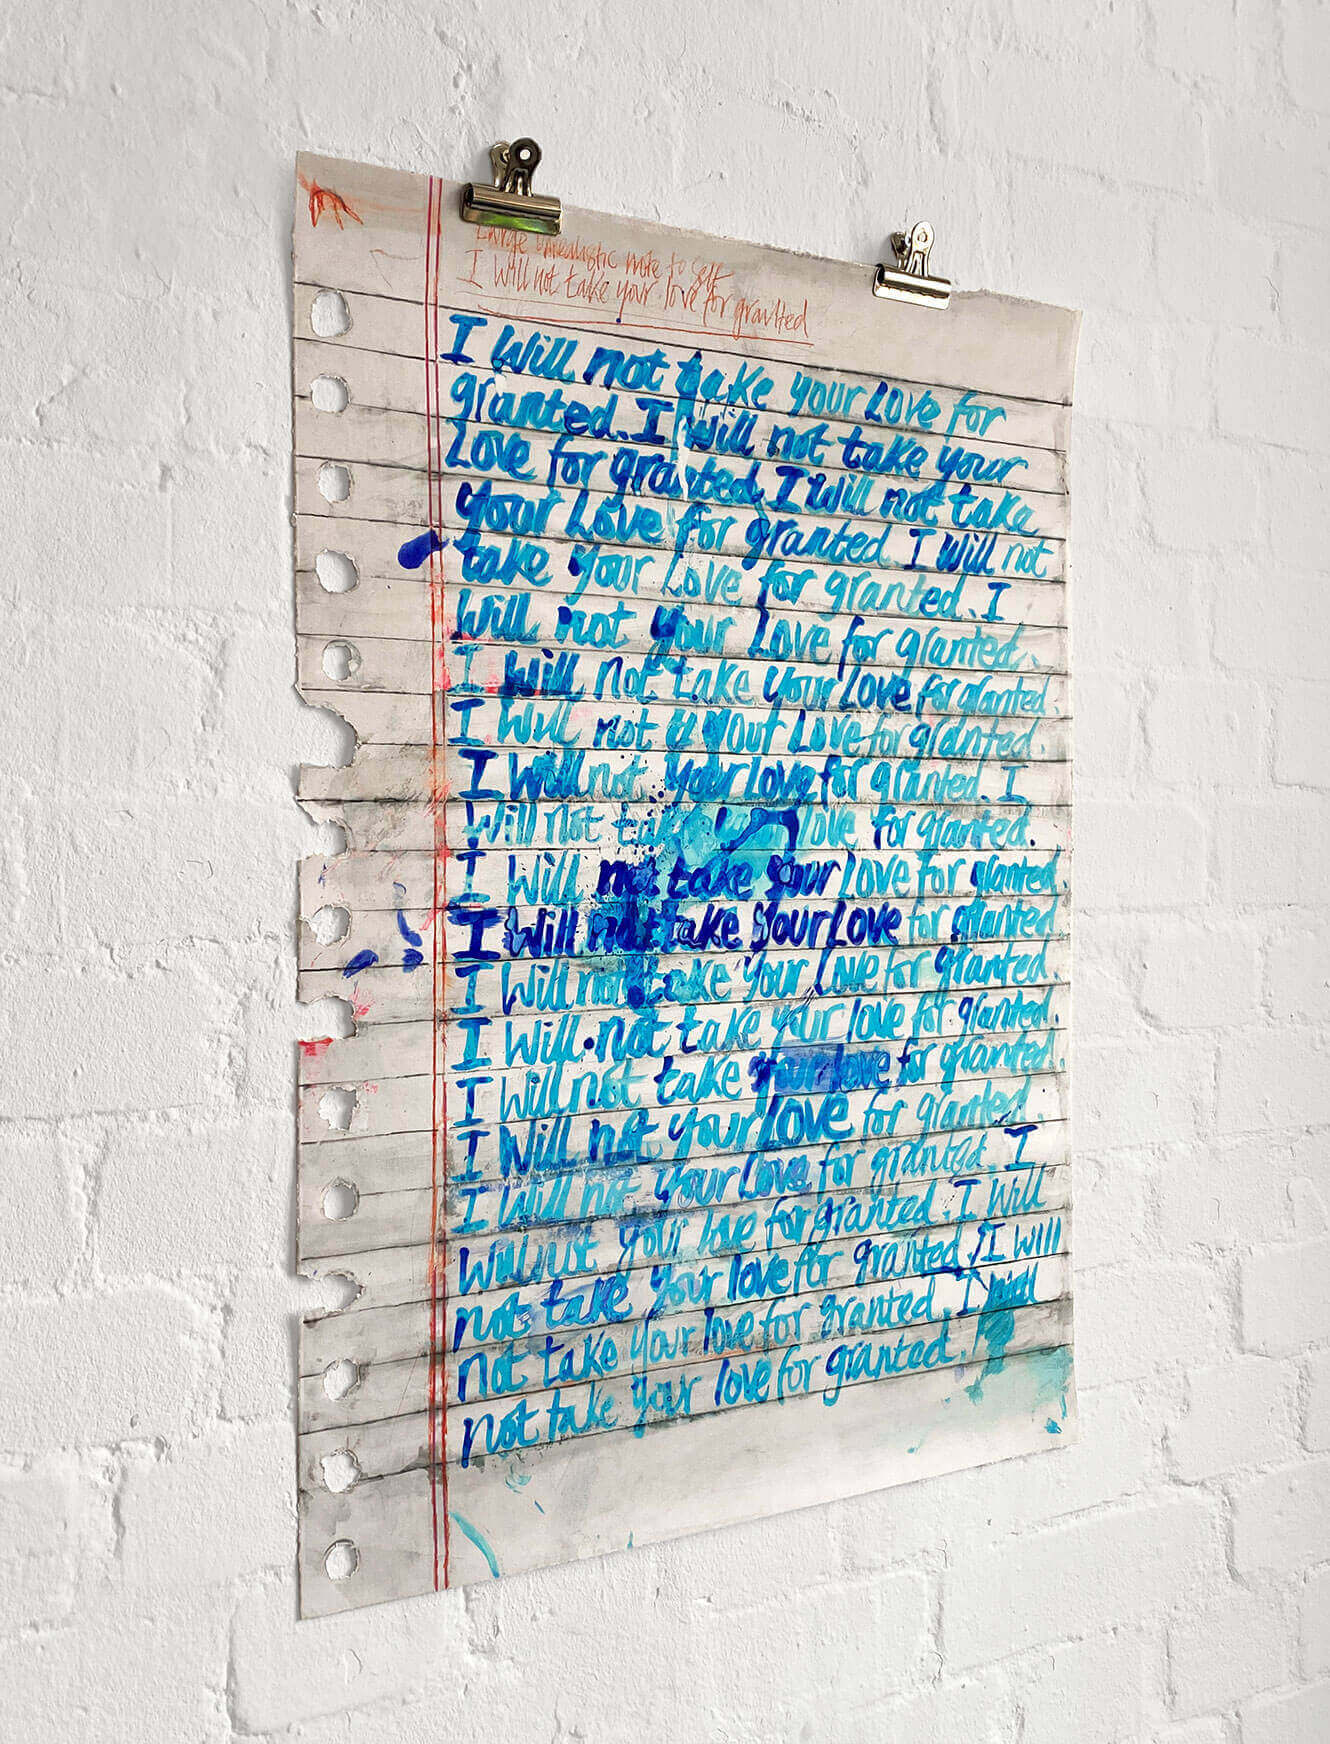 Large unrealistic note to self
I Will not take your love for granted
I Will not take your Love for
granted. I will not take your
Love for granted I Will not take
your Love for granted I Will not
take your Love for granted. I
Will not your Love for granted.
I Will not take your Love for granted.
I Will not your Love for granted.
I Will not your Love for granted. I
Will not take your love for granted.
I Will not take your Love for granted.
I Will not take your Love for granted
I Will not take your Love for granted.
I Will not take your love for granted.
I Will not take your love for granted.
I Will not your Love for granted.
I Will not your Love for granted. I
Will not your love for granted. I Will
not take your love for granted. I Will
not take your love for granted. I
not take your love for granted.